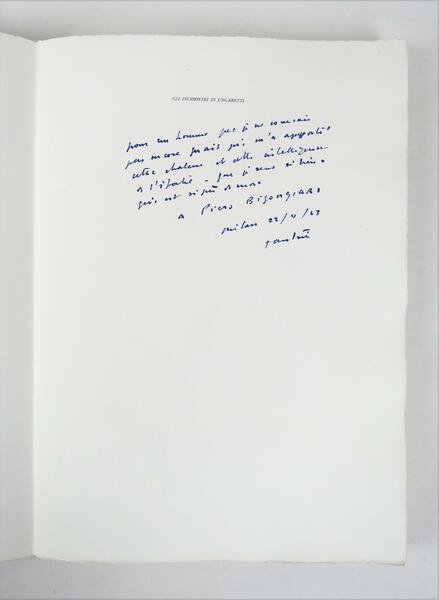 GLI INCHIOSTRI DI UNGARETTI
pour un homme que je ne connais
pas encore mais qui m'a apporté
cette chaleur et cette intelligence
de l'Italie - que je sens si bien
qui est si près de moi
a Piero BIGONGIARI
Milan 22/11/